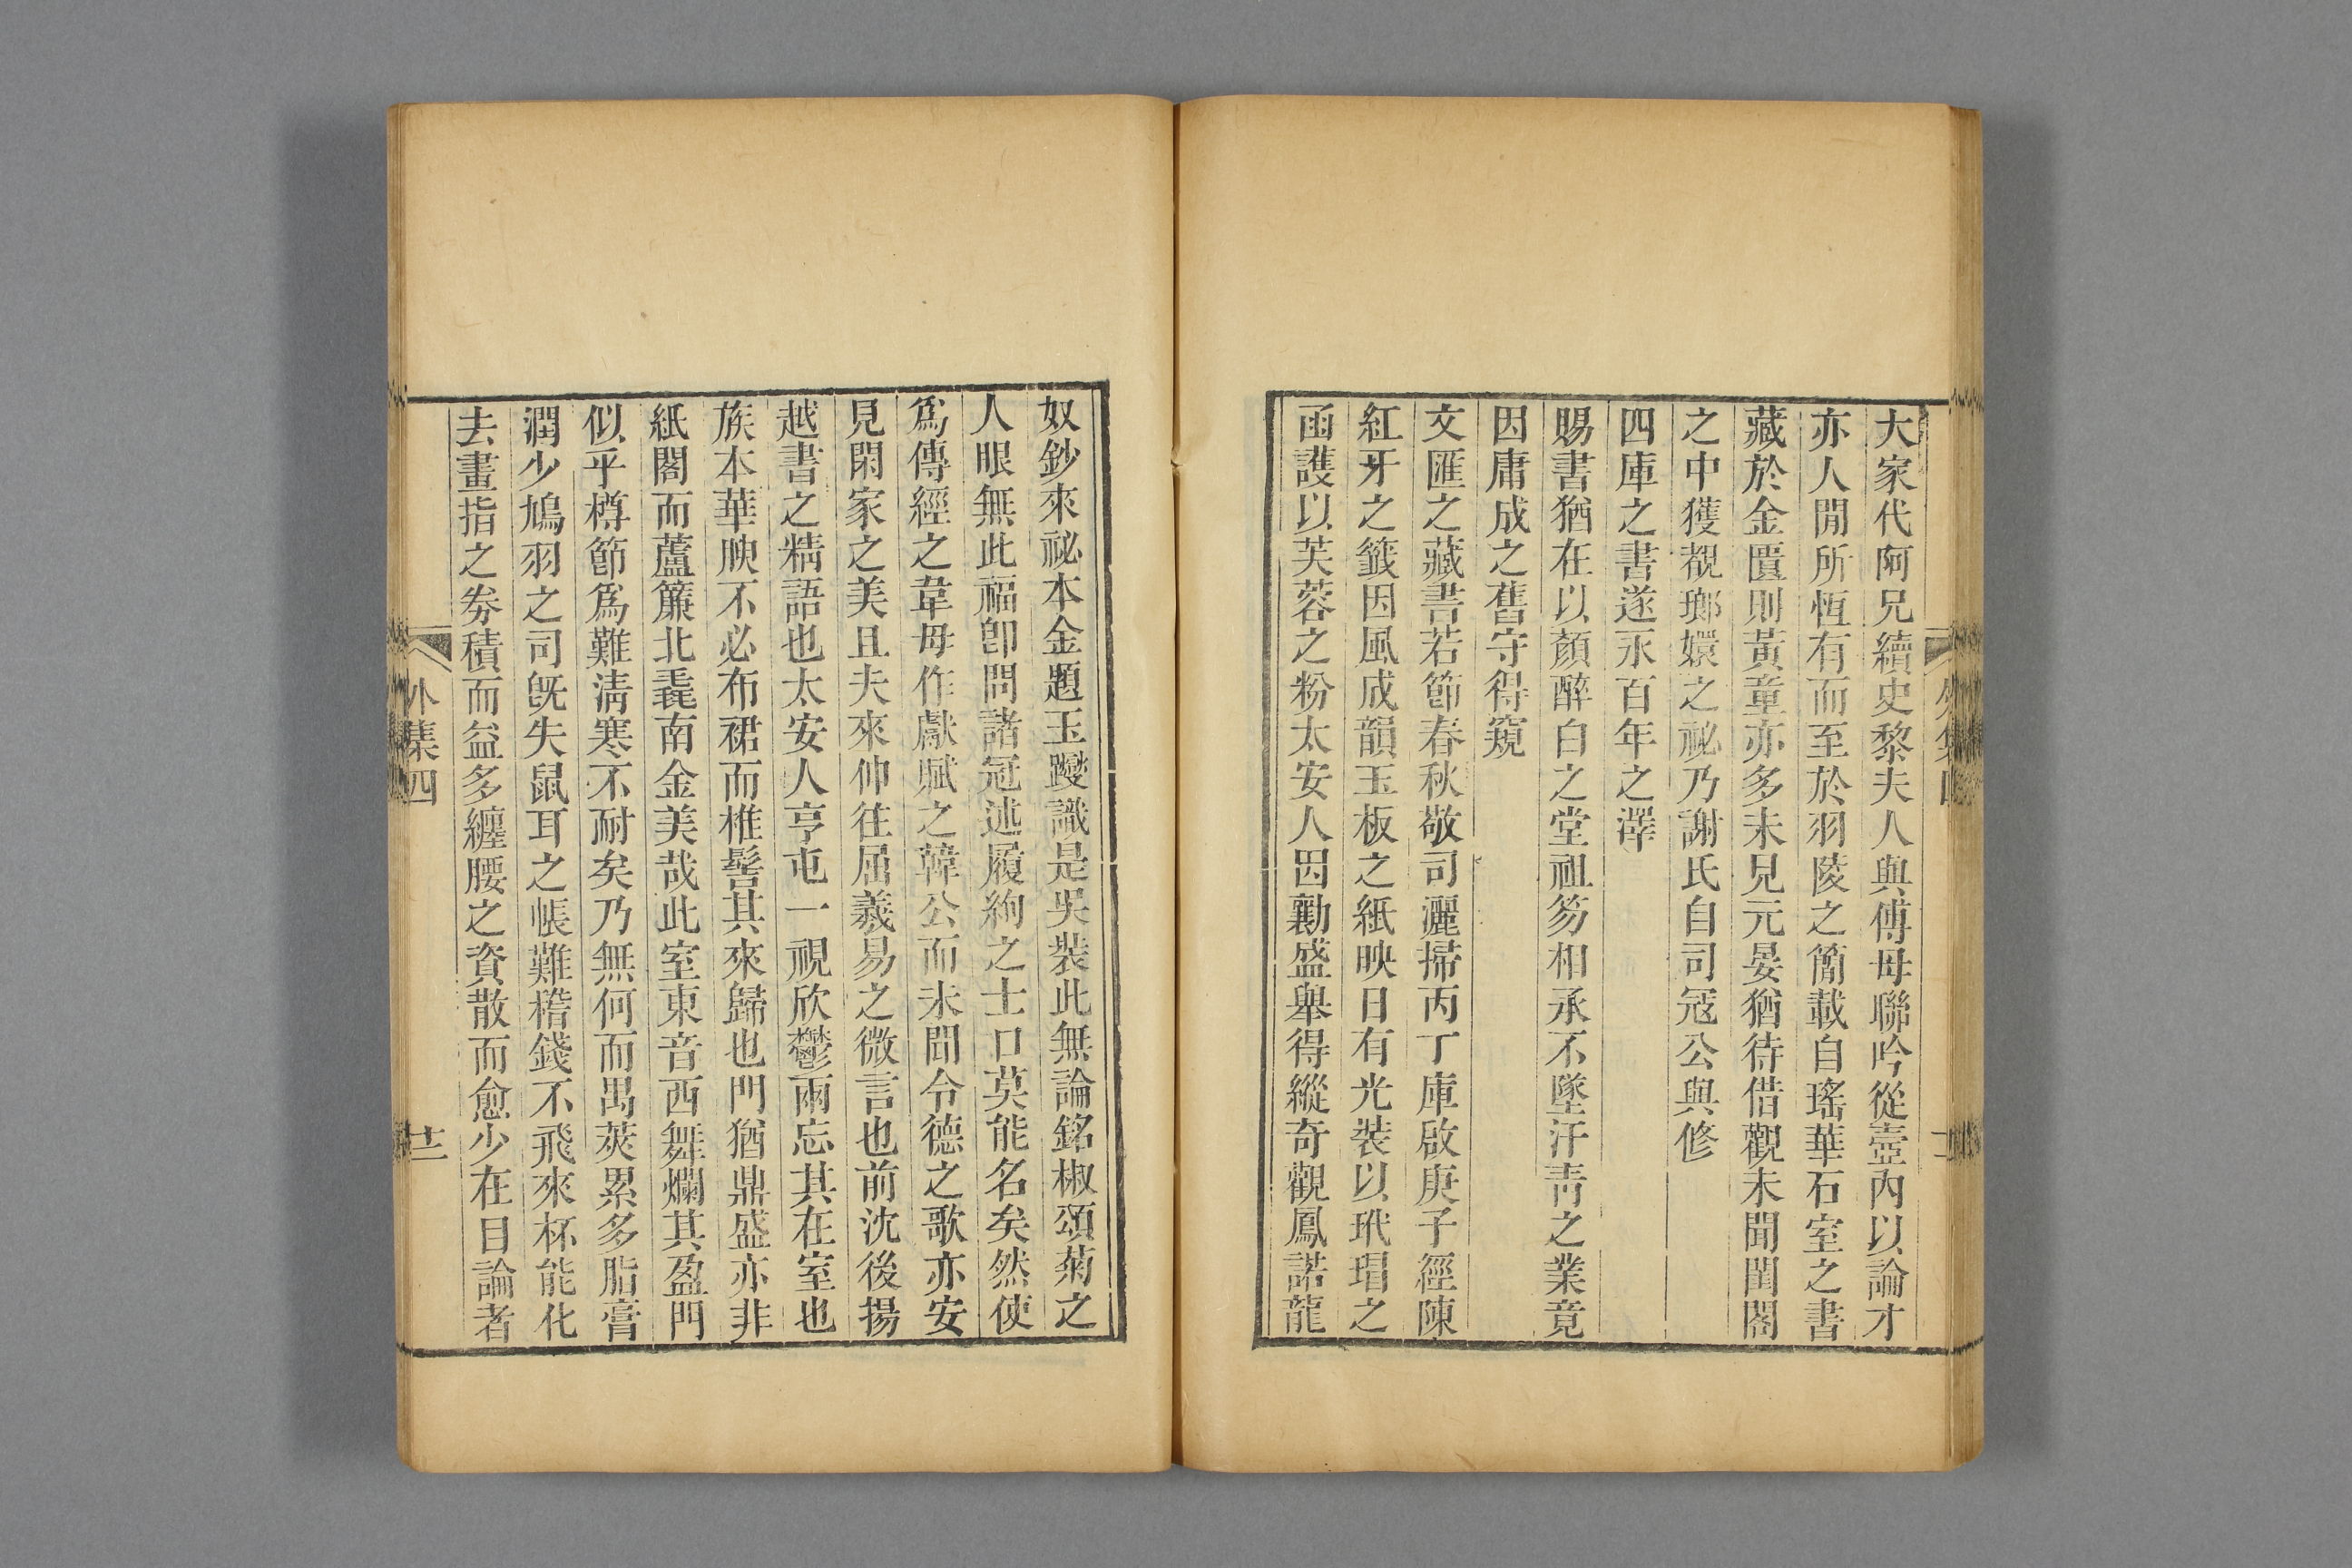 大家代阿兄續史黎夫人與傅母聯吟從壼內以論才
亦人閒所恆有而至於羽陵之簡載自瑤華石室之書
藏於金匱則黃童亦多未見元晏猶待借觀未聞閨閣
之中獲覩瑯嬛之祕乃謝氏自司冦公與修
四庫之書遂永百年之澤
賜書猶在以顏醉白之堂祖笏相承不墜汗靑之業竟
因庸成之舊守得窺
文匯之藏書若節春秋敬司灑掃丙丁庫啟庚子經陳
紅牙之籤因風成韻玉板之紙映日有光裝以玳瑁之
函護以芙蓉之粉太安人因勷盛舉得縱奇觀鳳諾龍
奴鈔來祕本金題玉躞識是吳裝此無論銘椒頌菊之
人眼無此福卽問諸冠述履絢之士口莫能名矣然使
爲傳經之韋母作獻賦之韓公而未聞令德之歌亦安
見閑家之美且夫來仲往屈羲易之微言也前沈後揚
越書之精語也太安人亨屯一視欣鬱兩忘其在室也
族本華腴不必布裙而椎髻其來歸也門猶鼎盛亦非
紙閣而蘆簾北毳南金美哉此室東音西舞爛其盈門
似乎樽節爲難淸寒不耐矣乃無何而禺莢累多脂膏
潤少鳩羽之司旣失鼠耳之帳難稽錢不飛來杯能化
去畫指之劵積而益多纏腰之資散而愈少在目論者
外集四